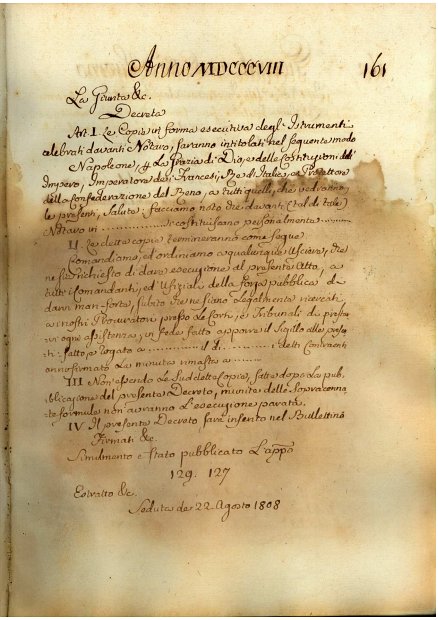 Anno MDCCCVIII 161
La Giunta &c.
Decreta
Art. I. Le Copie in forma esecutiva degl' Istrumenti
celebrati davanti Notaro, saranno intitolati nel seguente modo
Napoleone, p. la Grazia di Dio, e delle Costituzioni dell'
Impero, Imperatore de' Francesi, Re d'Italia, e Protettore
della Confederazione del Reno, a tutti quelli, che vedranno
le presenti, Salute; facciamo noto che davanti (tal di tale)
Notaro in .............. si costituiscano personalmente .........
II. Le dette copie termineranno come segue
Comandiamo, ed ordiniamo a qualunque Usciere, che
ne sia richiesto di dare esecuzione al presente Atto, a
tutti i Comandanti, ed Ufiziali della forza pubblica di
dare man-forte, subito che ne siano legalmente ricercati,
a nostri Procuratori presso le Corti, e Tribunali di prestar
vi ogni assistenza, in fede fatto apporre il Sigillo alle presen
ti; fatto, e rogato a .............. il di ............. detti Contraenti
anno firmato la minuta rimasta a ..............
III Non avendo le Suddette Copie, fatte dopo la pub-
blicazione del presente Decreto, munite delle sopraccenna
te formule non avranno l'esecuzione parata.
IV Il presente Decreto sarà inserito nel Bullettino
Firmati &c.
Similmente è stato pubblicato l'appo
129. 127
Estratto &c.
Seduta de 22. Agosto 1808